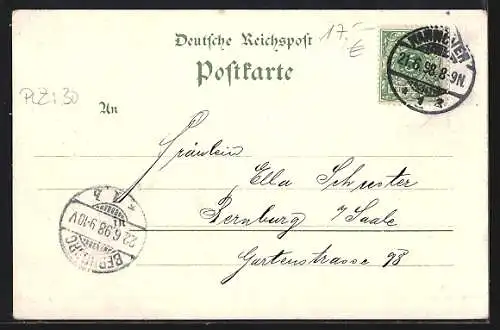 17.-
€
Deutsche Reichspost
Postkarte
HANNOVER
21.6.98.8-9N
* 1 z
PLZ: 30
An
Fräulein
Ella Schuster
Bernburg a/Saale
Gartenstrasse 98
BERNBURG
22.6.98.9-10V